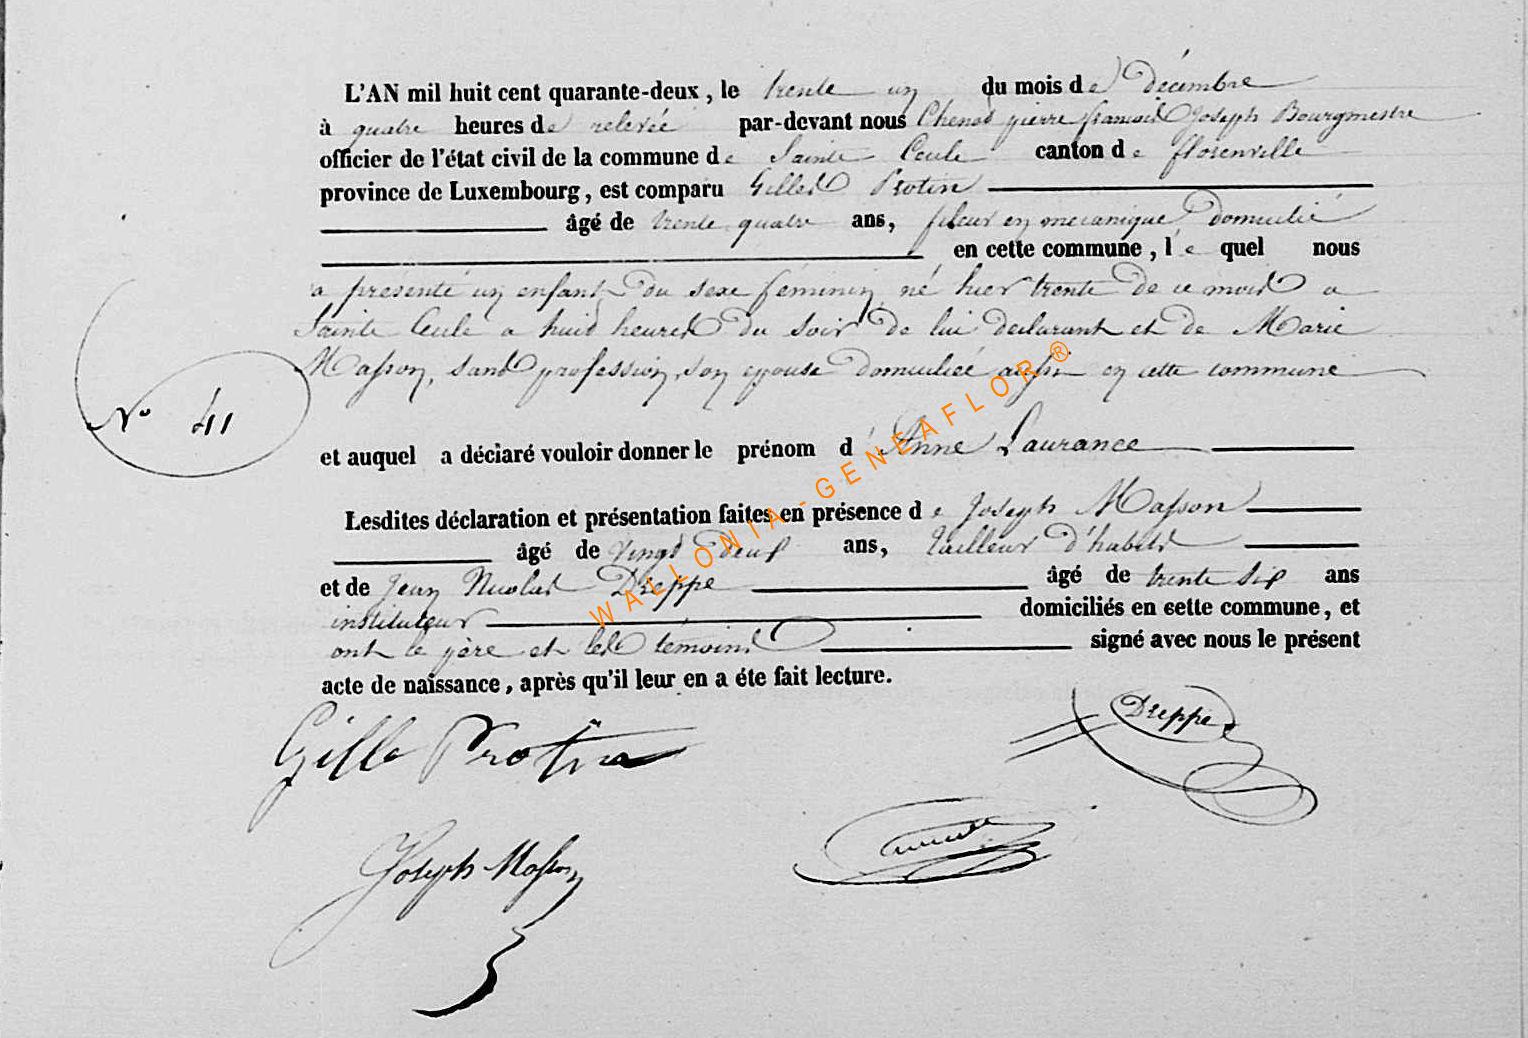 L'AN mil huit cent quarante-deux, le trente un du mois de décembre
à quatre heures de relevée par-devant nous pierre francois Joseph Bourgmestre
officier de l'état civil de la commune de Sainte Cecile canton de florenville
province de Luxembourg, est comparu Gilles Protin
âgé de trente quatre ans, fileur en mecanique domicilié
en cette commune, le quel nous
a présenté un enfant du sexe féminin, né hier trente de ce mois a
Sainte Cecile a huit heures du soir de lui declarant et de Marie
Masson, sans profession, son epouse domiciliée aussi en cette commune
N° 41
et auquel a déclaré vouloir donner le prénom d'Anne Laurance
Lesdites déclaration et présentation faites en présence de Joseph Masson
âgé de vingt deux ans, tailleur d'habits
et de Jean Nicolas Dreppe âgé de trente six ans
instituteur domiciliés en cette commune, et
ont le père et les témoins signé avec nous le présent
acte de naissance, après qu'il leur en a éte fait lecture.
Dreppe
Gille Protin
Joseph Masson
WALLONIA-GENEAFLOR®